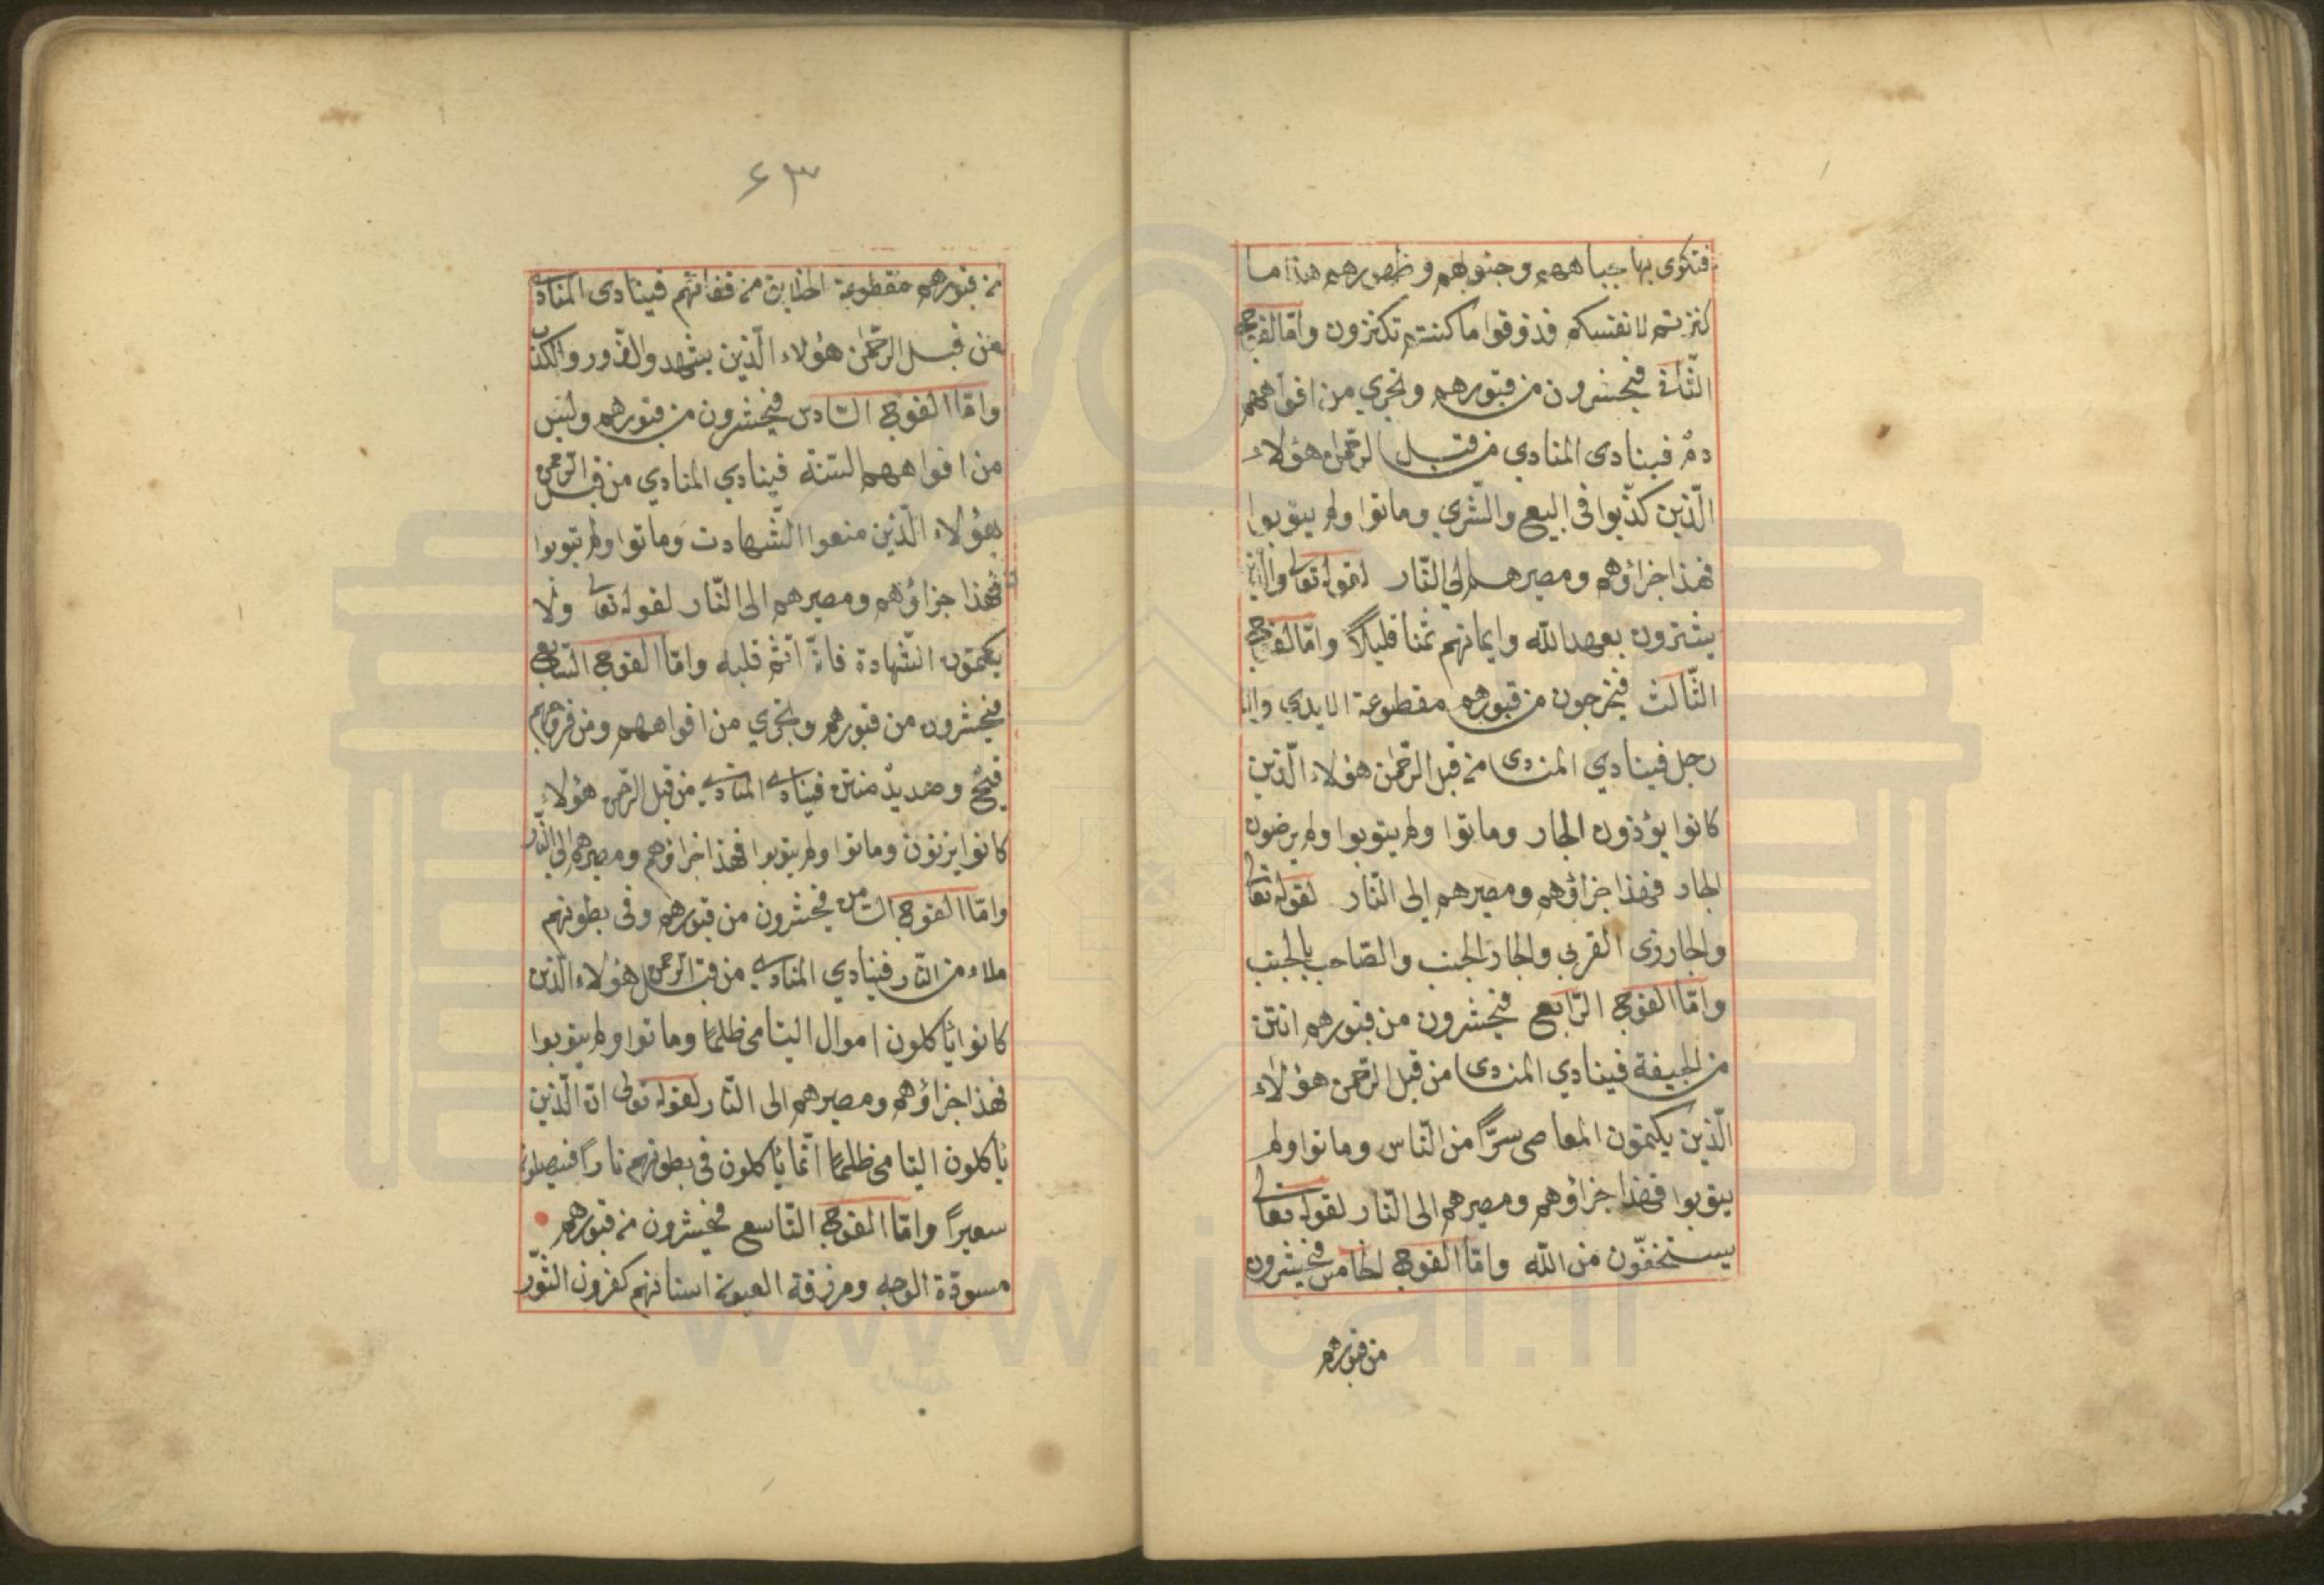 فتكوى بها جباههم وجنوبهم وظهورهم هذا ما
كنزتم لانفسكم فذوقوا ما كنتم تكنزون وامّا الفوج
الثّانى فيحشرون من قبورهم ويجرى من افواههم
دمٌ فينادى المنادي من قبل الرّحمن هؤلاء
الّذين كذّبوا فى البيع والشّرى وماتوا ولم يتوبوا
فهذا جزاؤهم ومصيرهم الى النّار لقوله تعالى والّذين
يشترون بعهد اللّه وايمانهم ثمنا قليلاً وامّا الفوج
الثّالث فيخرجون من قبورهم مقطوعة الايدي
رجل فينادي المندى من قبل الرّحمن هؤلاء الّذين
كانوا يؤذون الجار وماتوا ولم يتوبوا ولم يرضون
الجار فهذا جزاؤهم ومصيرهم الى النّار لقوله تعالى
والجار ذى القربى والجار الجنب والصّاحب بالجنب
وامّا الفوج الرّابع فيحشرون من قبورهم انتن
من الجيفة فينادي المندى من قبل الرّحمن هؤلاء
الّذين يكتمون المعاصى سرّاً من النّاس وماتوا ولم
يتوبوا فهذا جزاؤهم ومصيرهم الى النّار لقوله تعالى
يستخفّون من اللّه وامّا الفوج الخامس فيحشرون
من قبورهم
٦٣
من قبورهم مقطوعة من قفائهم فينادى المنادى
من قبل الرّحمن هؤلاء الّذين يشهدوالزّور والكذب
وامّا الفوج السّادس فيحشرون من قبورهم وليس
من افواههم السنة فينادي المنادي من قبل الرّحمن
هؤلاء الّذين منعوا الشّهادت وماتوا ولم يتوبوا
فهذا جزاؤهم ومصيرهم الى النّار لقوله تعالى ولا
يكتمون الشّهادة فانّ اثم قلبه وامّا الفوج السّابع
فيحشرون من قبورهم ويجرى من افواههم ومن فروجهم
قيحٌ وصديدٌ منتن فينادى المنادى من قبل الرّحمن هؤلاء
كانوا يزنون وماتوا ولم يتوبوا فهذا جزاؤهم ومصيرهم الى النّار
وامّا الفوج الثّامن فيحشرون من قبورهم وفى بطونهم
ملاء من النّار فينادي المنادى من قبل الرّحمن هؤلاء الّذين
كانوا يأكلون اموال اليتامى ظلمًا وماتوا ولم يتوبوا
فهذا جزاؤهم ومصيرهم الى النّار لقوله تعالى انّ الّذين
يأكلون اليتامى ظلمًا انّما يأكلون فى بطونهم ناراً فسيصلون
سعيراً وامّا الفوج التّاسع فيحشرون من قبورهم
مسوّدة الوجه ومزرقة العيون اسنانهم كقرون الثّور
www.ical.ir